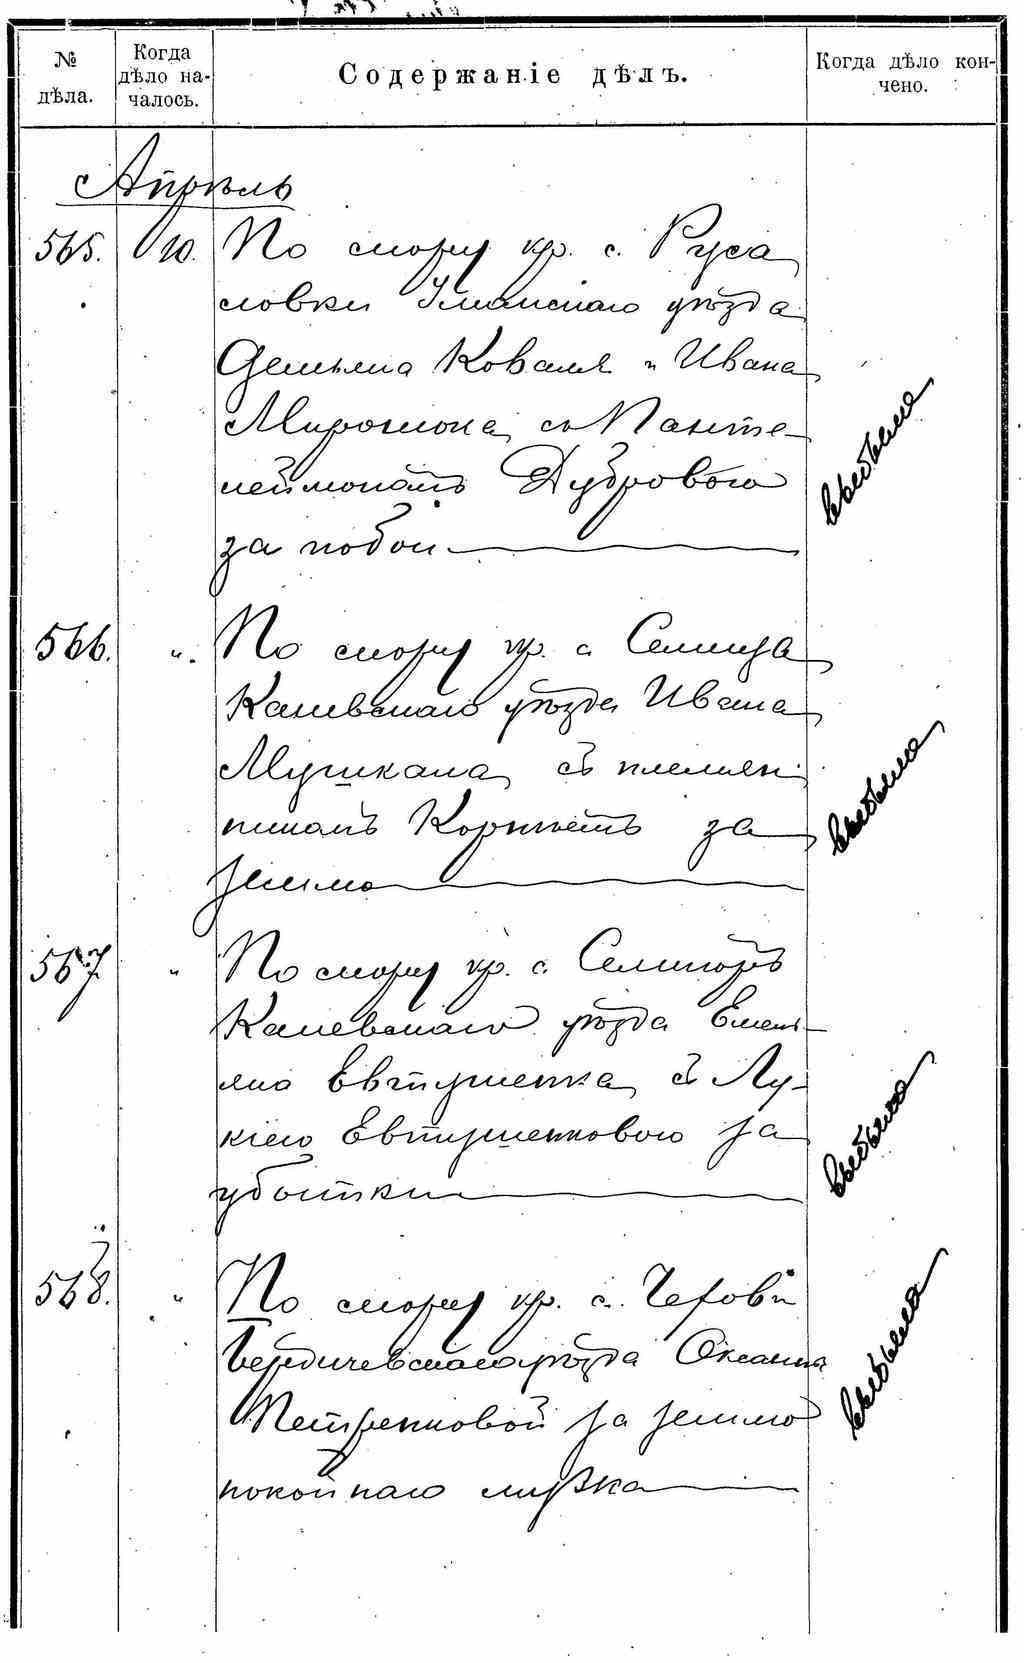 № дѣла.
Когда дѣло на-
чалось.
Содержаніе дѣлъ.
Когда дѣло кон-
чено.
Апрѣль
565. 10. По спору кр. с. Руса
ловки Уманскаго уѣзда
Демьяна Коваля и Ивана
Мирошника съ Панте-
леймономъ Дубровою
за побои
выбыла
566. „ По спору кр. с.
Каневскаго уѣзда Ивана
съ племян
никомъ за
землю
выбыла
567 „ По спору кр. с.
Каневскаго уѣзда Емель-
яна Евтушенка съ Лу-
кіею Евтушенковою за
убытки
выбыла
568. „ По спору кр. с.
Бердичевскаго уѣзда Оксаны
Петренковой за землю
покойнаго мужа
выбыла